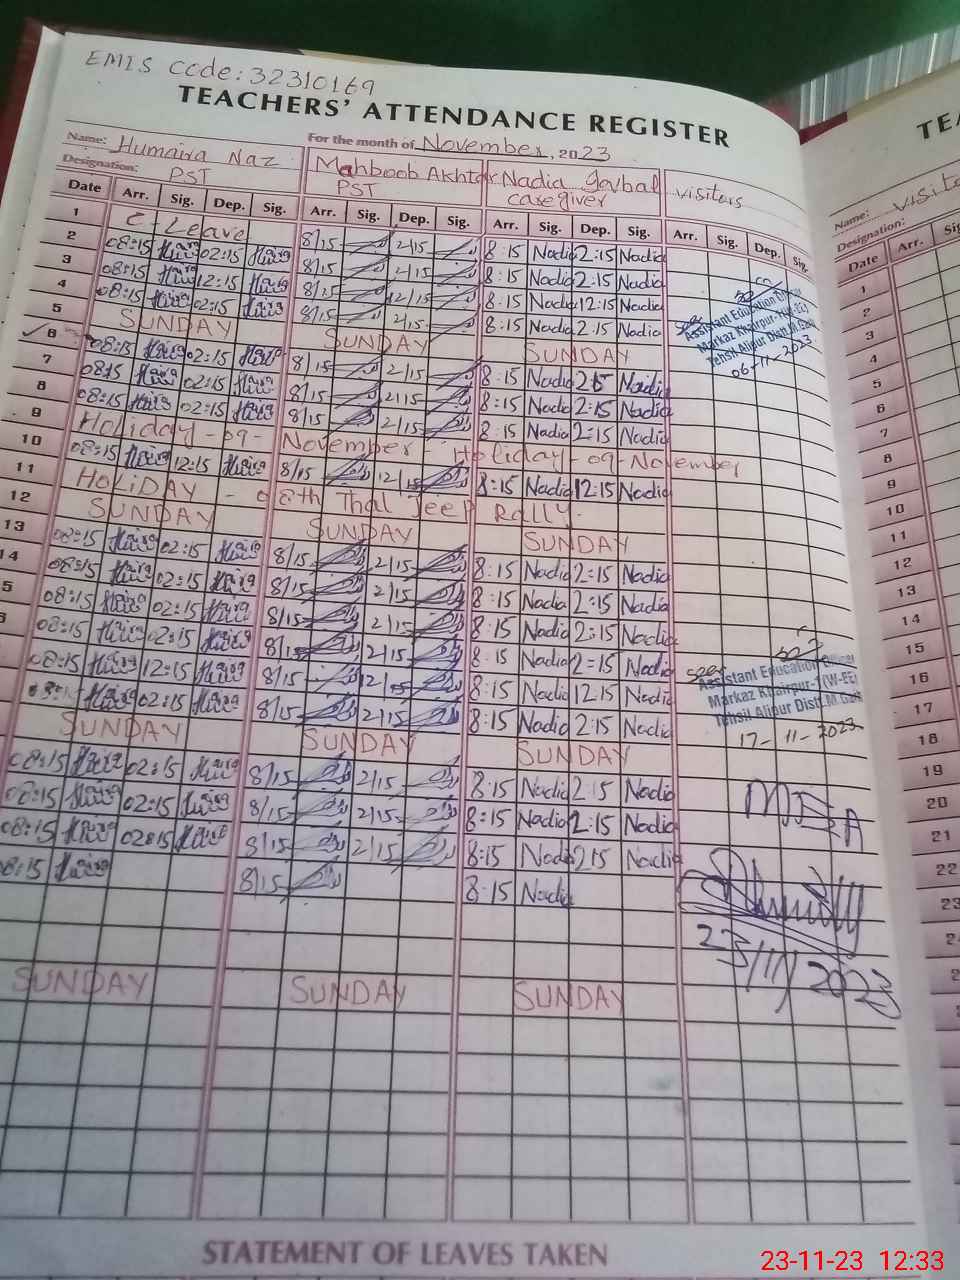 EMIS code: 32310169
TEACHERS' ATTENDANCE REGISTER
For the month of November, 2023
Name: Humaira Naz Mahboob Akhtar Nadia govbal visitors
Designation: PST PST caregiver
Date Arr. Sig. Dep. Sig. Arr. Sig. Dep. Sig. Arr. Sig. Dep. Sig. Arr. Sig. Dep. Sig.
1 C-Leave 8/15 2/15 8:15 Nadia 2:15 Nadia
2 08:15 02:15 8/15 2/15 8:15 Nadia 2:15 Nadia
3 08:15 12:15 8/15 12/15 8:15 Nadia 12:15 Nadia
4 08:15 02:15 8/15 2/15 8:15 Nadia 2:15 Nadia
5 SUNDAY SUNDAY SUNDAY
6 08:15 02:15 8/15 2/15 8:15 Nadia 2:15 Nadia
7 0815 02:15 8/15 2/15 8:15 Nadia 2:15 Nadia
8 08:15 02:15 8/15 2/15 8:15 Nadia 2:15 Nadia
9 Holiday - 09 - November - Holiday - 09 - November
10 08:15 12:15 8/15 12/15 8:15 Nadia 12:15 Nadia
11 HOLIDAY - 08th Thal Jeep Rally.
12 SUNDAY SUNDAY SUNDAY
13 08:15 02:15 8/15 2/15 8:15 Nadia 2:15 Nadia
14 08:15 02:15 8/15 2/15 8:15 Nadia 2:15 Nadia
5 08:15 02:15 8/15 2/15 8:15 Nadia 2:15 Nadia
08:15 02:15 8/15 2/15 8:15 Nadia 2:15 Nadia
08:15 12:15 8/15 12/15 8:15 Nadia 12:15 Nadia
02:15 8/15 2/15 8:15 Nadia 2:15 Nadia
SUNDAY SUNDAY SUNDAY
08:15 02:15 8/15 2/15 8:15 Nadia 2:15 Nadia
08:15 02:15 8/15 2/15 8:15 Nadia 2:15 Nadia
08:15 02:15 8/15 2/15 8:15 Nadia 2:15 Nadia
08:15 8/15 8:15 Nadia
SUNDAY SUNDAY SUNDAY
Assistant Education Officer
Markaz Khairpur-1(W-EE)
Tehsil Alipur Distt. M.Garh
06-11-2023
Assistant Education Officer
Markaz Khairpur-1(W-EE)
Tehsil Alipur Distt. M.Garh
17-11-2023
MEA
23/11/2023
STATEMENT OF LEAVES TAKEN
Name:
Designation:
Date Arr.
1
2
3
4
5
6
7
8
9
10
11
12
13
14
15
16
17
18
19
20
21
22
23
23-11-23 12:33